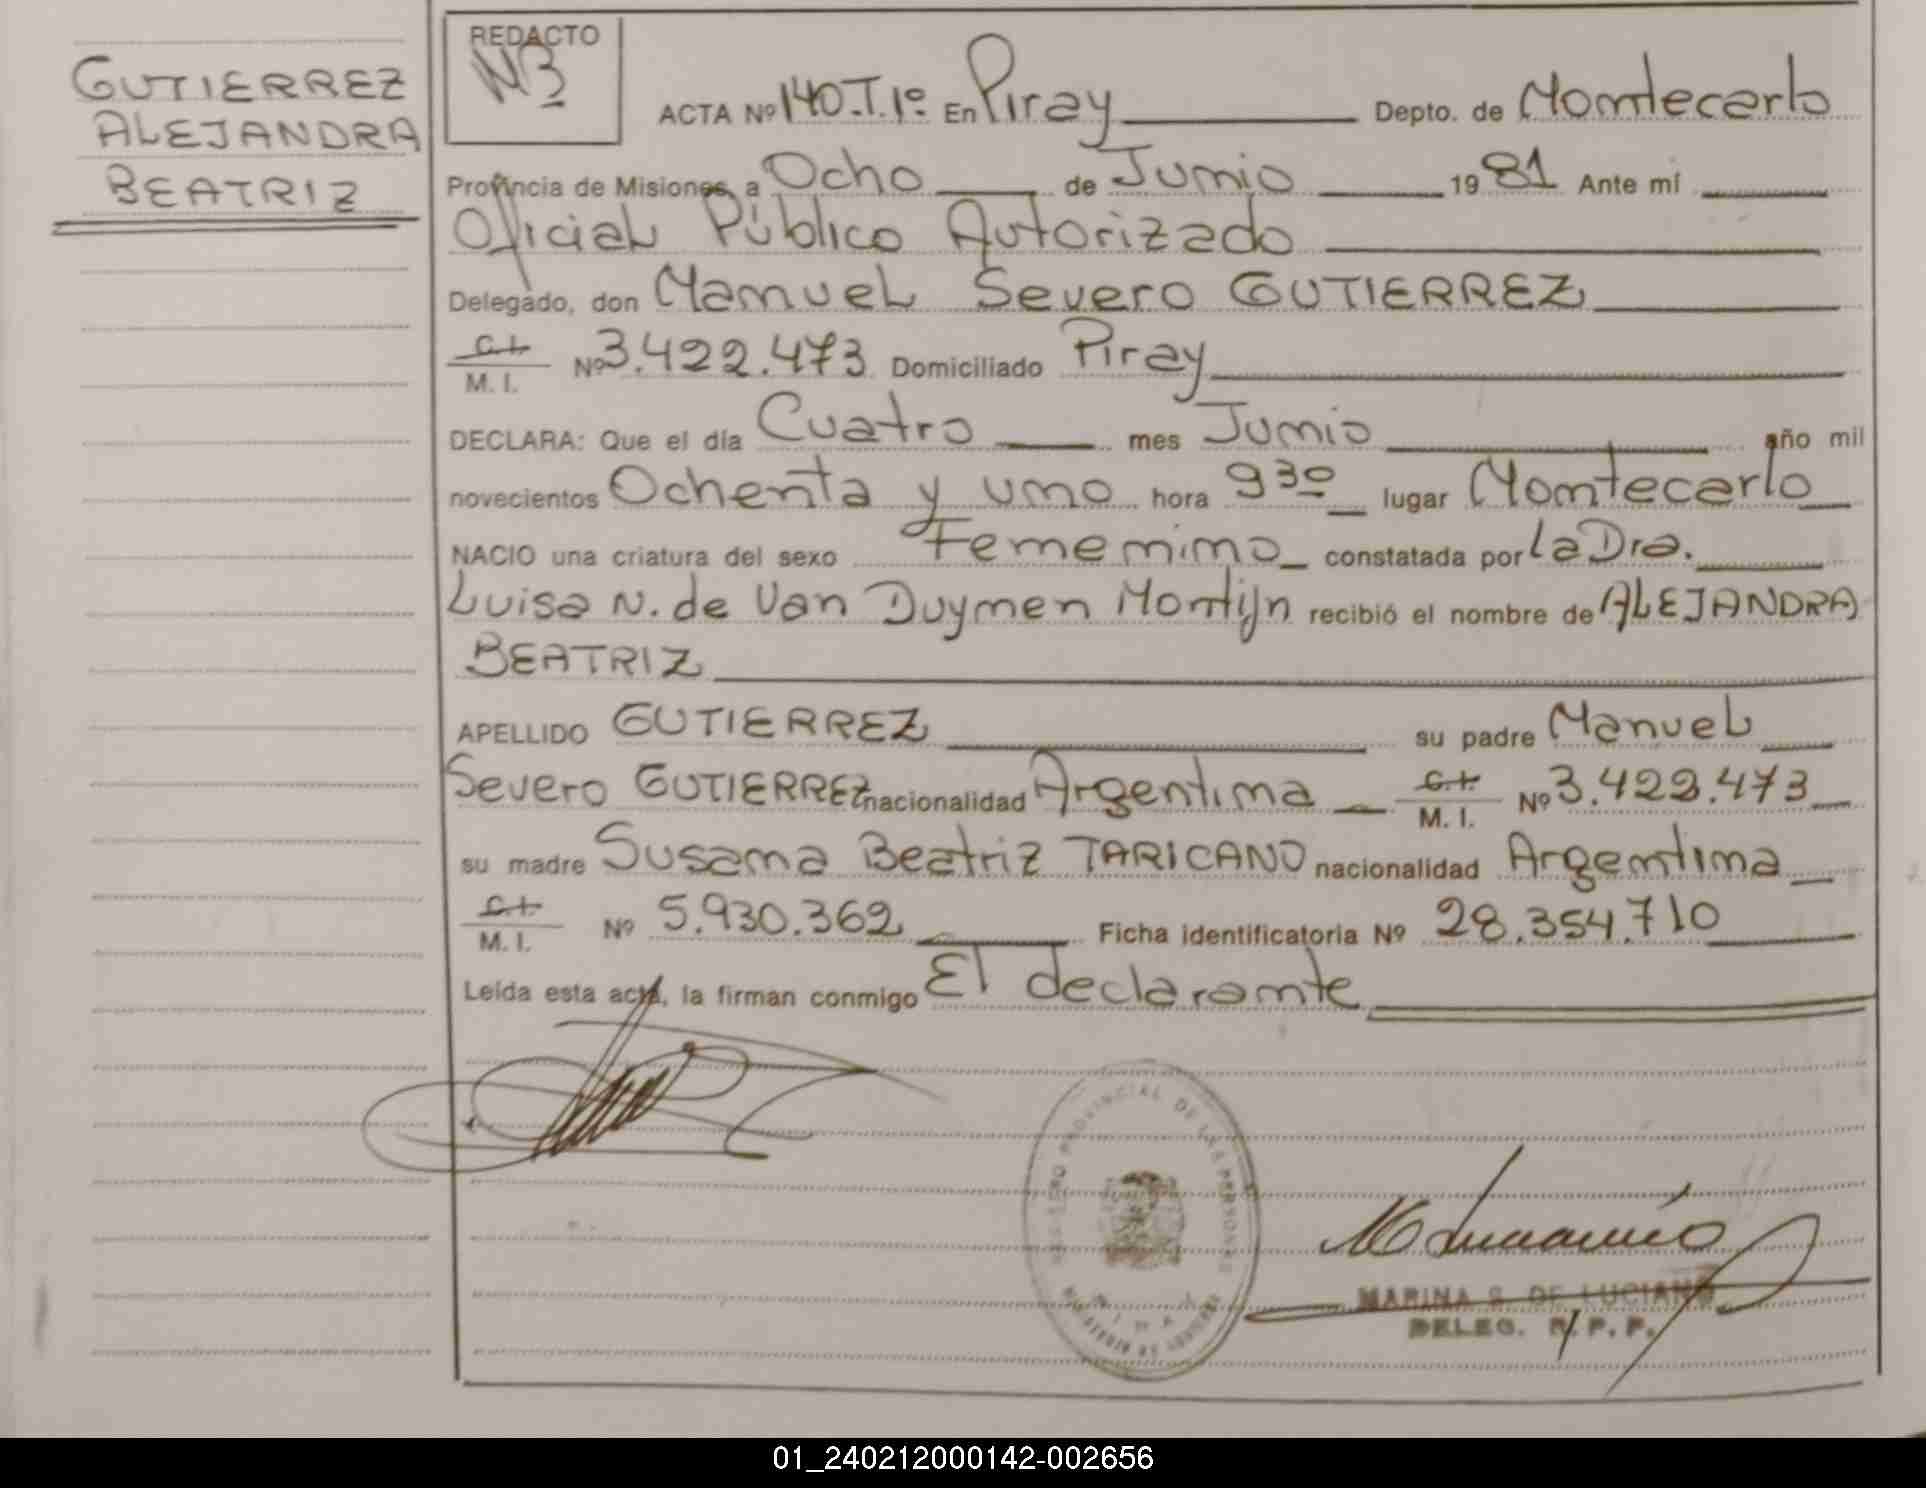 GUTIERREZ
ALEJANDRA
BEATRIZ
REDACTO
ACTA Nº 140.T.1º En Piray Depto. de Montecarlo
Provincia de Misiones, a Ocho de Junio 1981 Ante mí
Oficial Público Autorizado
Delegado, don Manuel Severo GUTIERREZ
C.I. / M. I. Nº 3.422.473 Domiciliado Piray
DECLARA: Que el día Cuatro mes Junio año mil
novecientos Ochenta y uno hora 9 30 lugar Montecarlo
NACIO una criatura del sexo Femenino constatada por La Dra.
Luisa N. de Van Duymen Montijn recibió el nombre de ALEJANDRA
BEATRIZ
APELLIDO GUTIERREZ su padre Manuel
Severo GUTIERREZ nacionalidad Argentina C.I. / M. I. Nº 3.422.473
su madre Susana Beatriz TARICANO nacionalidad Argentina
C.I. / M. I. Nº 5.930.362 Ficha identificatoria Nº 28.354.710
Leída esta acta, la firman conmigo El declarante
REGISTRO PROVINCIAL DE LAS PERSONAS
MARINA S. DE LUCIANO
DELEG. R. P. P.
01_240212000142-002656